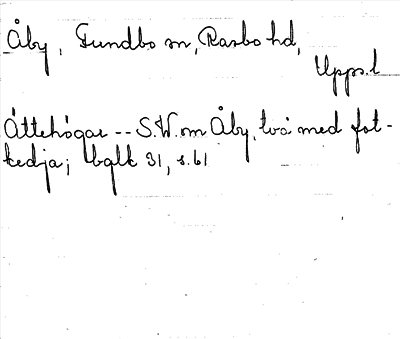 Åby, Tundbo sn, Rasbo hd,
Upps. l
Ättehögar -- S.W. om Åby, två med fot-
kedja; bqlk 31, s. 61